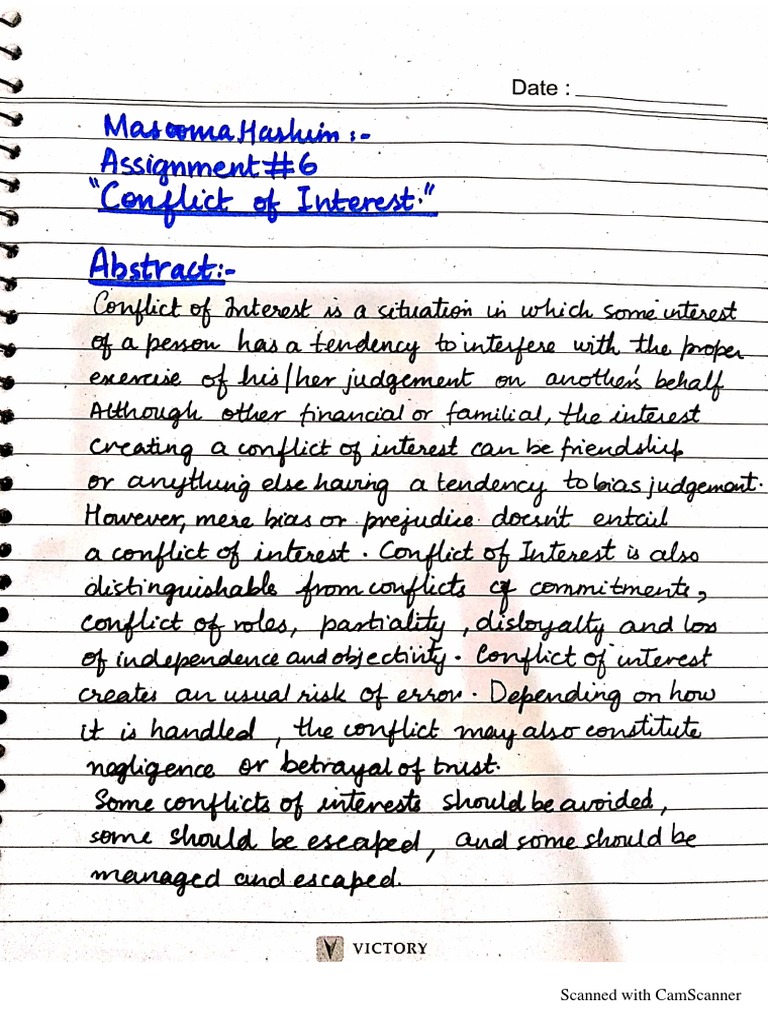 Date :
Masooma Hashim :-
Assignment #6
"Conflict of Interest."
Abstract:-
Conflict of Interest is a situation in which some interest
of a person has a tendency to interfere with the proper
exercise of his/her judgement on another's behalf
Although other financial or familial, the interest
creating a conflict of interest can be friendship
or anything else having a tendency to bias judgement.
However, mere bias or prejudice doesn't entail
a conflict of interest. Conflict of Interest is also
distinguishable from conflicts of commitments,
conflict of roles, partiality, disloyalty and loss
of independence and objectivity. Conflict of interest
creates an usual risk of error. Depending on how
it is handled, the conflict may also constitute
negligence or betrayal of trust.
Some conflicts of interests should be avoided,
some should be escaped, and some should be
managed and escaped.
VICTORY
Scanned with CamScanner